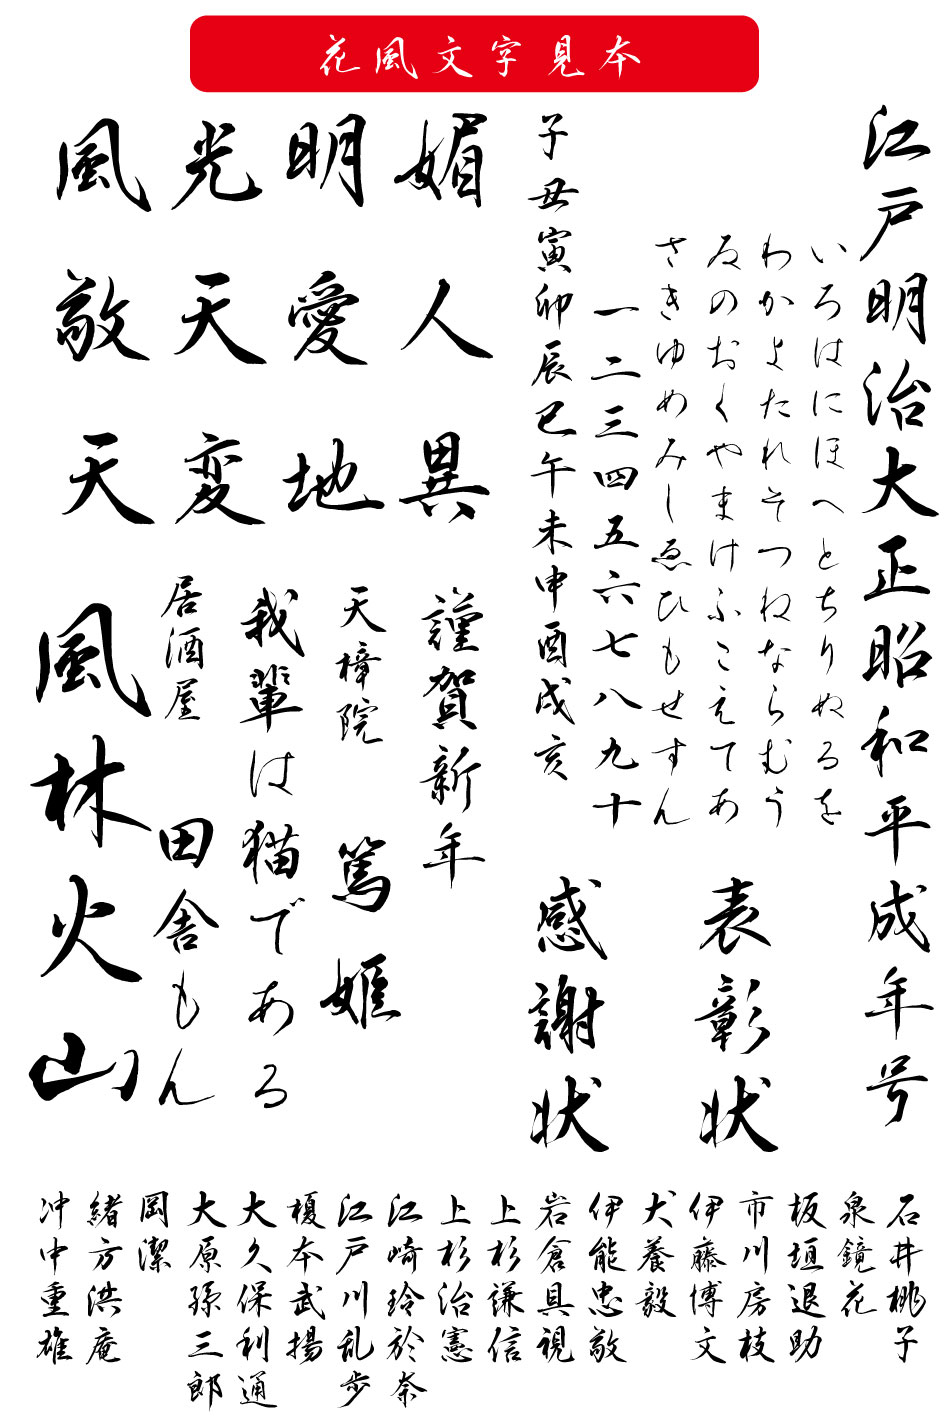 花風文字見本
江戸明治大正昭和平成年号
いろはにほへとちりぬるを
わかよたれそつねならむう
ゐのおくやまけふこえてあ
さきゆめみしゑひもせすん
一二三四五六七八九十
子丑寅卯辰巳午未申酉戌亥
表彰状
感謝状
風光明媚
敬天愛人
天変地異
謹賀新年
天樟院
篤姫
我輩は猫である
居酒屋
田舎もん
風林火山
石井桃子
泉鏡花
板垣退助
市川房枝
伊藤博文
犬養毅
伊能忠敬
岩倉具視
上杉謙信
上杉治憲
江崎玲於奈
江戸川乱歩
榎本武揚
大久保利通
大原孫三郎
岡潔
緒方洪庵
冲中重雄